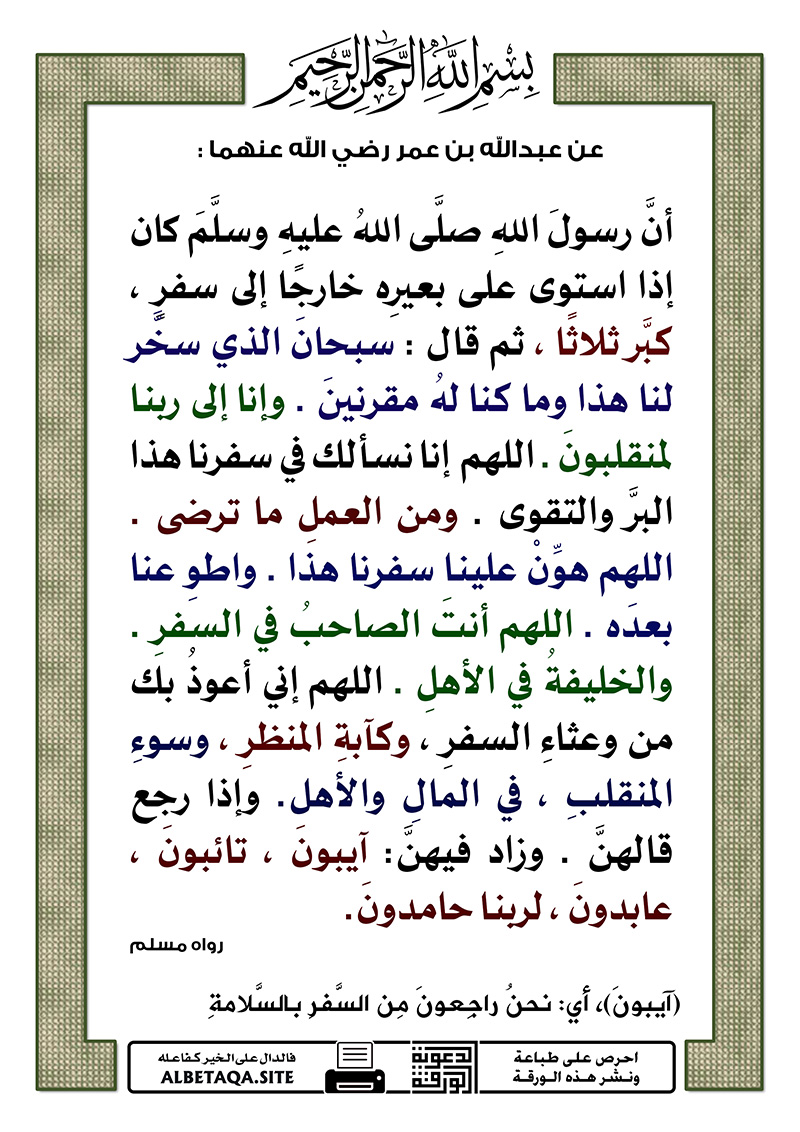 بِسْمِ اللَّهِ الرَّحْمَنِ الرَّحِيمِ
عن عبدالله بن عمر رضي الله عنهما :
أنَّ رسولَ اللهِ صلَّى اللهُ عليهِ وسلَّمَ كان
إذا استوى على بعيرِه خارجًا إلى سفرٍ ،
كبَّر ثلاثًا ، ثم قال : سبحانَ الذي سخَّر
لنا هذا وما كنا لهُ مقرنِينَ . وإنا إلى ربنا
لمنقلبونَ . اللهم إنا نسألك في سفرنا هذا
البرَّ والتقوى . ومن العملِ ما ترضى .
اللهم هوِّنْ علينا سفرنا هذا . واطوِ عنا
بعدَه . اللهم أنتَ الصاحبُ في السفرِ .
والخليفةُ في الأهلِ . اللهم إني أعوذُ بك
من وعثاءِ السفرِ ، وكآبةِ المنظرِ ، وسوءِ
المنقلبِ ، في المالِ والأهل. وإذا رجع
قالهنَّ . وزاد فيهنَّ: آيبونَ ، تائبونَ ،
عابدونَ ، لربنا حامدونَ.
رواه مسلم
(آيبونَ)، أي: نحنُ راجِعونَ مِن السَّفرِ بالسَّلامةِ
احرص على طباعة
ونشر هذه الورقة
الدعوية
الورقة
فالدال على الخير كفاعله
ALBETAQA.SITE